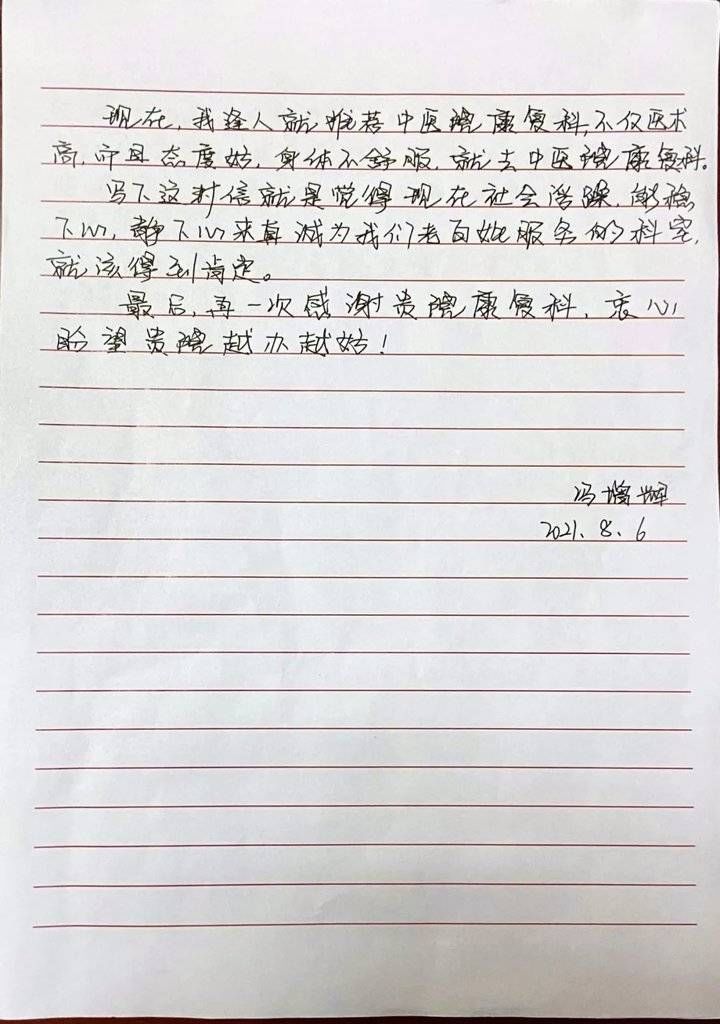 现在，我逢人就推荐中医院康复科，不仅医术
高，而且态度好，身体不舒服，就去中医院康复科。
写下这封信就是觉得现在社会浮躁，能稳
下心，静下心来真诚为我们老百姓服务的科室，
就该得到肯定。
最后，再一次感谢贵院康复科，衷心
盼望贵院越办越好！
冯增辉
2021.8.6